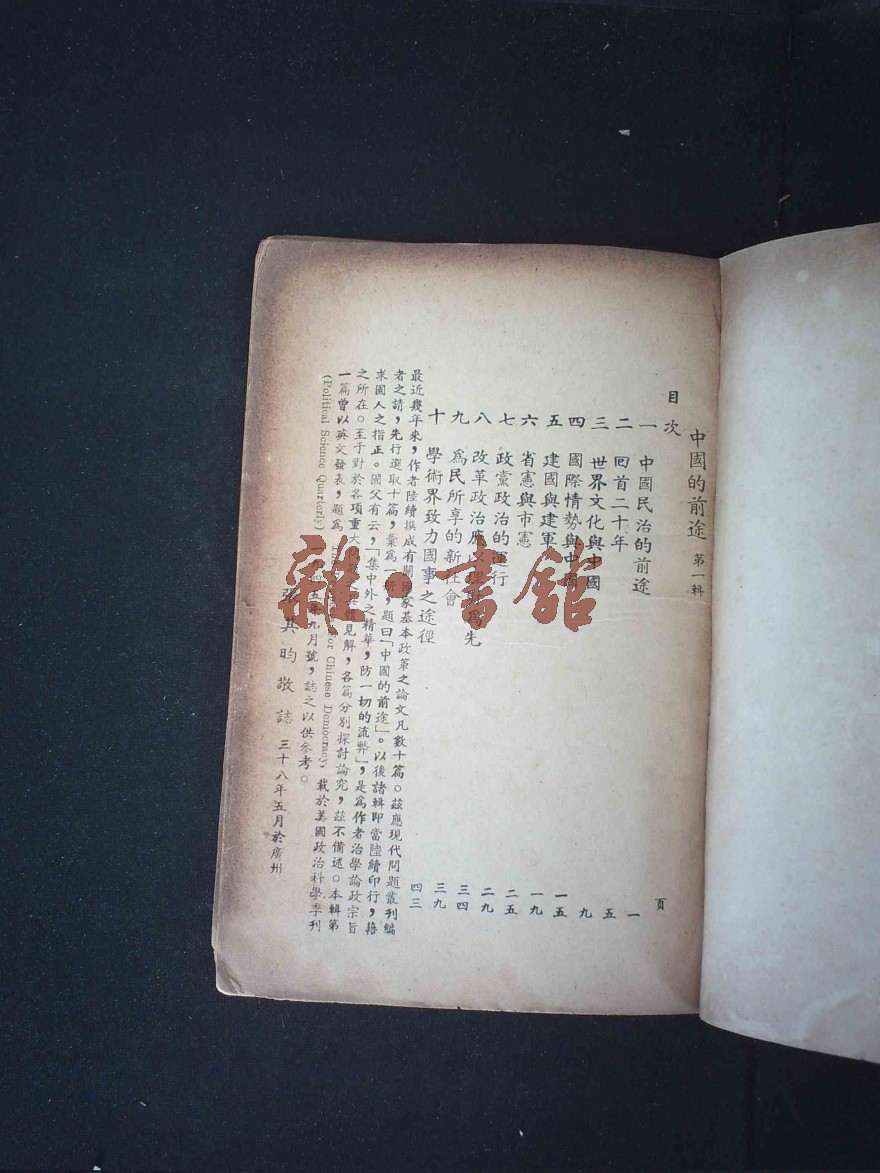 中國的前途 第一輯
目次
頁
一 中國民治的前途 一
二 回首二十年 五
三 世界文化與中國 九
四 國際情勢與中國 一五
五 建國與建軍 一九
六 省憲與市憲 二五
七 政黨政治的運行 二九
八 改革政治應以理財為先 三四
九 爲民所享的新社會 三九
十 學術界致力國事之途徑 四三
最近幾年來,作者陸續撰成有關國家基本政策之論文凡數十篇。茲應現代問題叢刊編
者之請,先行選取十篇,彙爲一冊,題曰「中國的前途」。以後諸輯即當陸續印行,藉
求國人之指正。國父有云,「集中外之精華,防一切的流弊」,是爲作者治學論政宗旨
之所在。至于對於各項重大 見解,各篇分別探討論究,茲不備述。本輯第
一篇曾以英文發表,題爲 for Chinese Democracy, 載於美國政治科學季刊
(Political Science Quarterly) 一九四五年九月號,誌之以供參考。
張其昀敬誌 三十八年五月於廣州
雜·書館